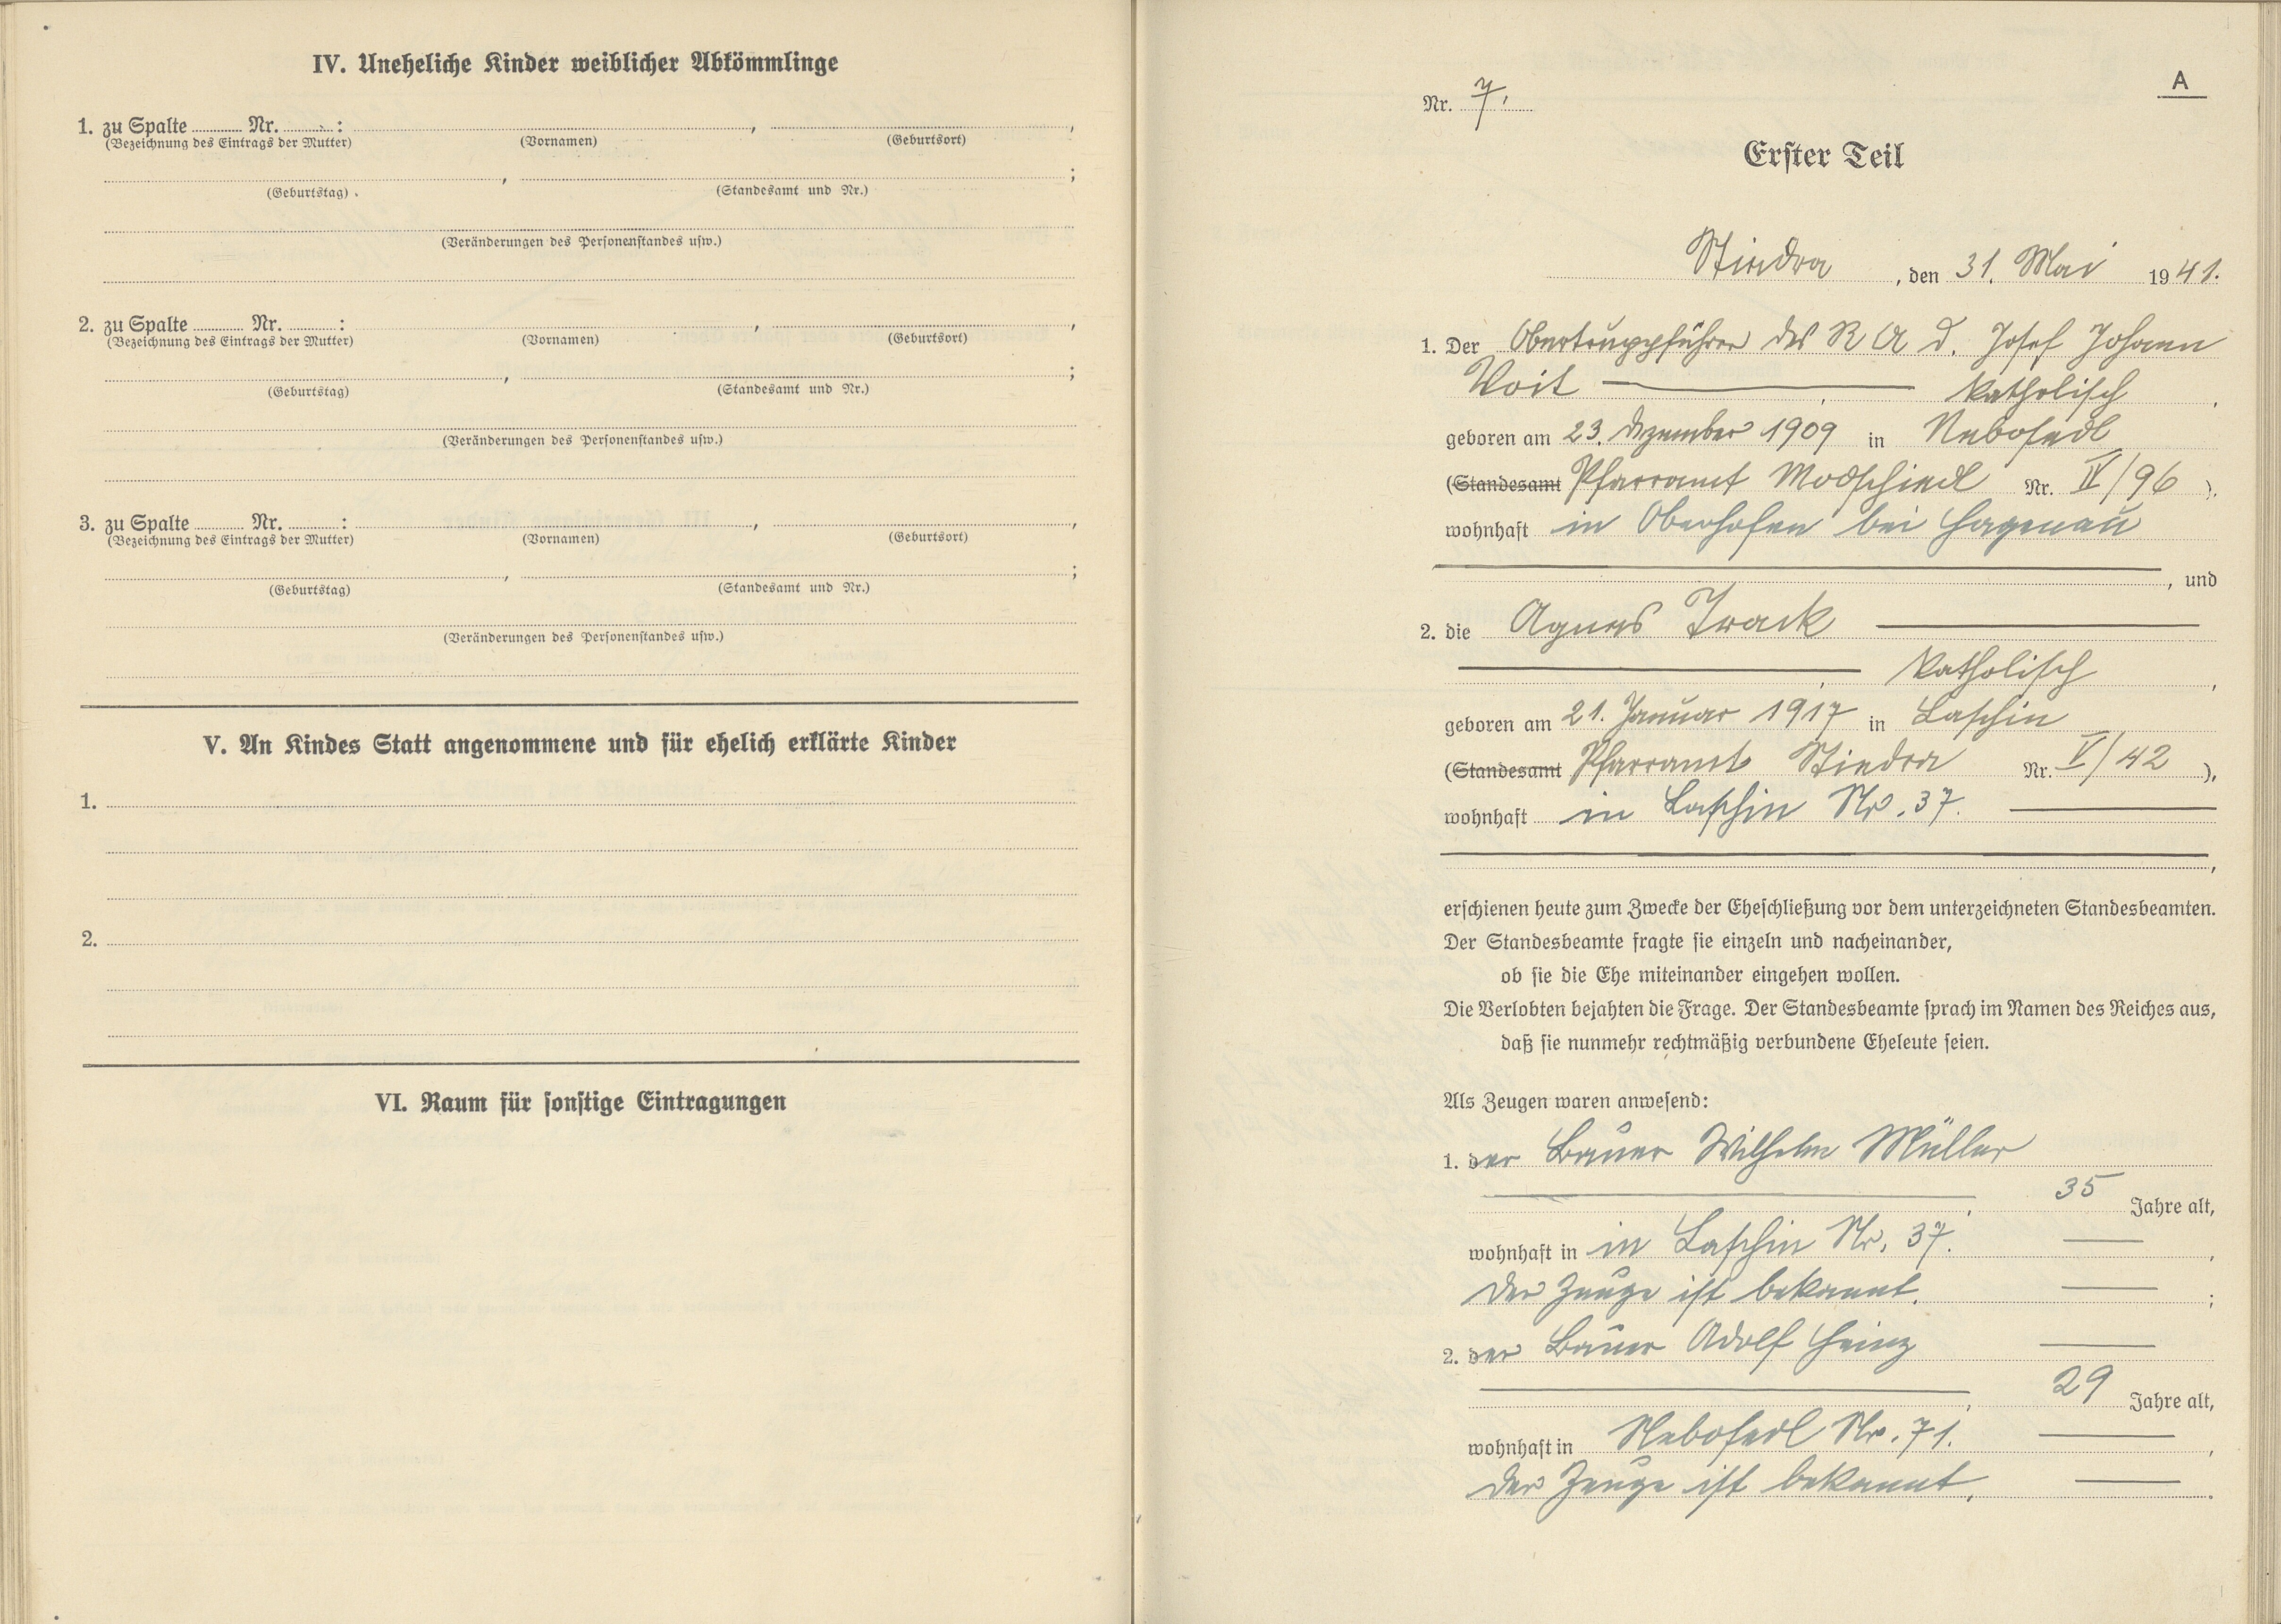 IV. Uneheliche Kinder weiblicher Abkömmlinge
1. zu Spalte ........ Nr. ........ : , ,
(Bezeichnung des Eintrags der Mutter) (Vornamen) (Geburtsort)
, ;
(Geburtstag) (Standesamt und Nr.)
(Veränderungen des Personenstandes usw.)
2. zu Spalte ........ Nr. ........ : , ,
(Bezeichnung des Eintrags der Mutter) (Vornamen) (Geburtsort)
, ;
(Geburtstag) (Standesamt und Nr.)
(Veränderungen des Personenstandes usw.)
3. zu Spalte ........ Nr. ........ : , ,
(Bezeichnung des Eintrags der Mutter) (Vornamen) (Geburtsort)
, ;
(Geburtstag) (Standesamt und Nr.)
(Veränderungen des Personenstandes usw.)
V. An Kindes Statt angenommene und für ehelich erklärte Kinder
1.
2.
VI. Raum für sonstige Eintragungen
A
Nr. 7.
Erster Teil
Stiedra, den 31. Mai 1941.
1. Der Obertruppführer des R A D. Josef Johann
Voit katholisch,
geboren am 23. Dezember 1909 in Nebosedl
(Standesamt Pfarramt Modschiedl Nr. IV/96 ),
wohnhaft in Oberhofen bei Hagenau
, und
2. die Agnes Track
katholisch,
geboren am 21. Januar 1917 in Laschin
(Standesamt Pfarramt Stiedra Nr. V/42 ),
wohnhaft in Laschin Nr. 37.
,
erschienen heute zum Zwecke der Eheschließung vor dem unterzeichneten Standesbeamten.
Der Standesbeamte fragte sie einzeln und nacheinander,
ob sie die Ehe miteinander eingehen wollen.
Die Verlobten bejahten die Frage. Der Standesbeamte sprach im Namen des Reiches aus,
daß sie nunmehr rechtmäßig verbundene Eheleute seien.
Als Zeugen waren anwesend:
1. der Bauer Wilhelm Müller
, 35 Jahre alt,
wohnhaft in in Laschin Nr. 37. ,
Der Zeuge ist bekannt. ;
2. der Bauer Adolf Heinz
, 29 Jahre alt,
wohnhaft in Nebosedl Nr. 71. ,
Der Zeuge ist bekannt. .